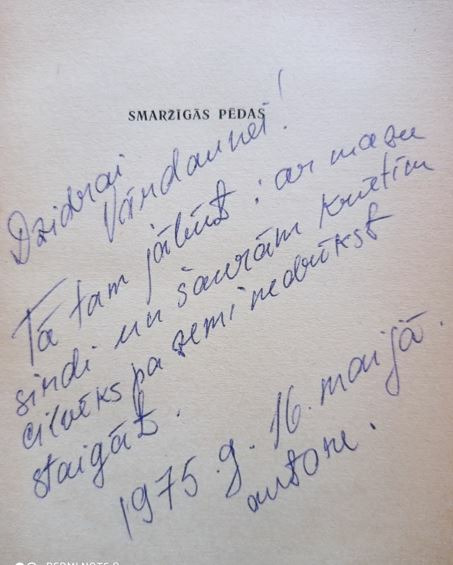 SMARZĪGĀS PĒDAS
Dzidrai
Vārdaunei!
Tā tam jābūt : ar mazu
sirdi un šaurām krūtīm
cilvēks pa zemi nedrīkst
staigāt.
1975. g. 16. maijā.
autore.
REDMI NOTE 8